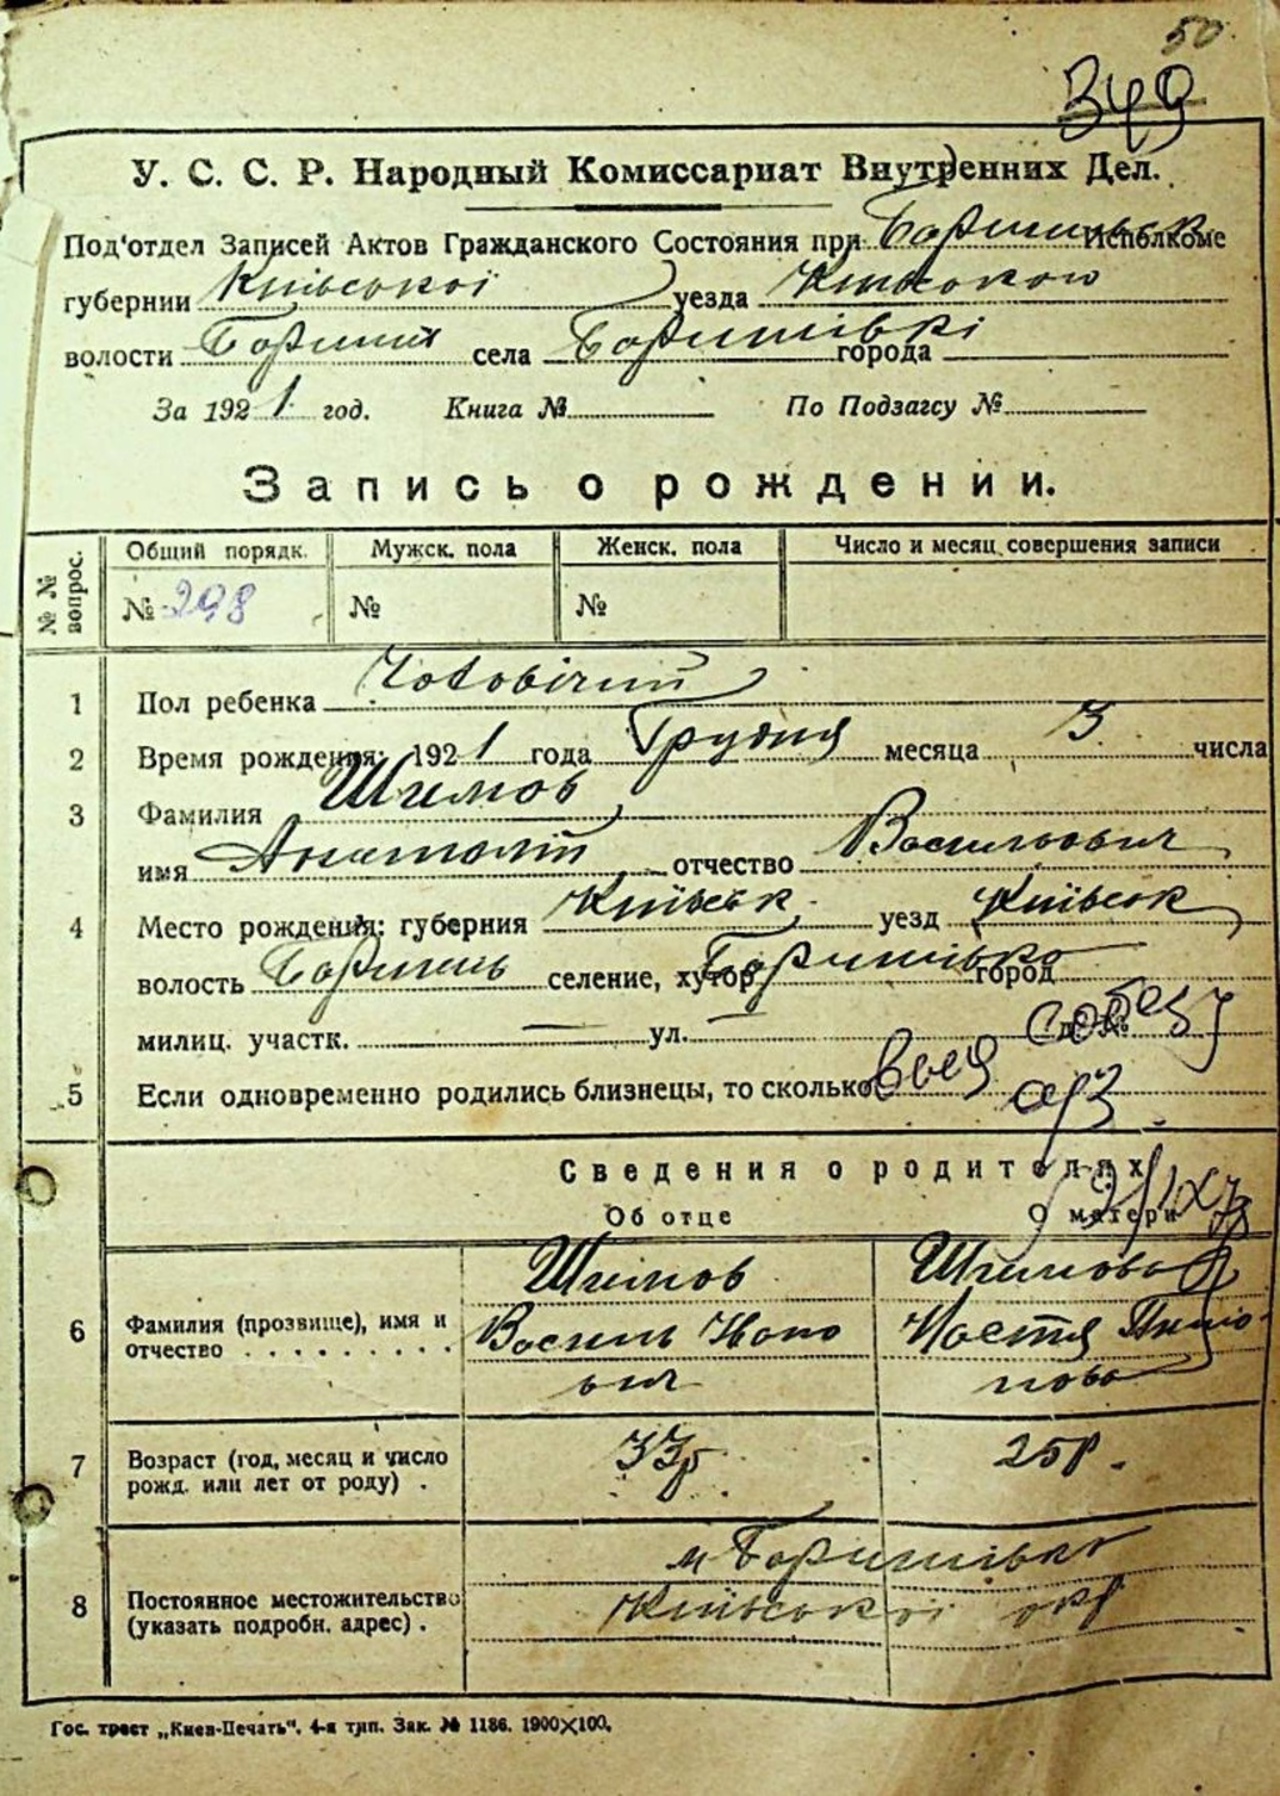 50
349
У. С. С. Р. Народный Комиссариат Внутренних Дел.
Под'отдел Записей Актов Гражданского Состояния при Баришпільск Исполкоме
губернии Київської уезда Київського
волости Баришп села города
За 1921 год. Книга № По Подзагсу №
Запись о рождении.
№№ вопрос.
Общий порядк. Мужск. пола Женск. пола Число и месяц совершения записи
№ 298 № №
1 Пол ребенка Чоловічий
2 Время рождения: 1921 года Грудня месяца 3 числа
3 Фамилия Шимов
имя Анатолій отчество Васильович
4 Место рождения: губерния Київськ уезд Київськ
волость селение, хутор город
милиц. участк. — ул. — д. №
собезу
5 Если одновременно родились близнецы, то сколько
Сведения о родителях
Об отце О матери
6 Фамилия (прозвище), имя и отчество
Шимов Шимова
Василь Настя
вич
7 Возраст (год, месяц и число рожд. или лет от роду)
33 р. 25 р.
8 Постоянное местожительство (указать подробн. адрес)
м
Київської окр
Гос. трест „Киев-Печать“. 4-я тип. Зак. № 1186. 1900×100.